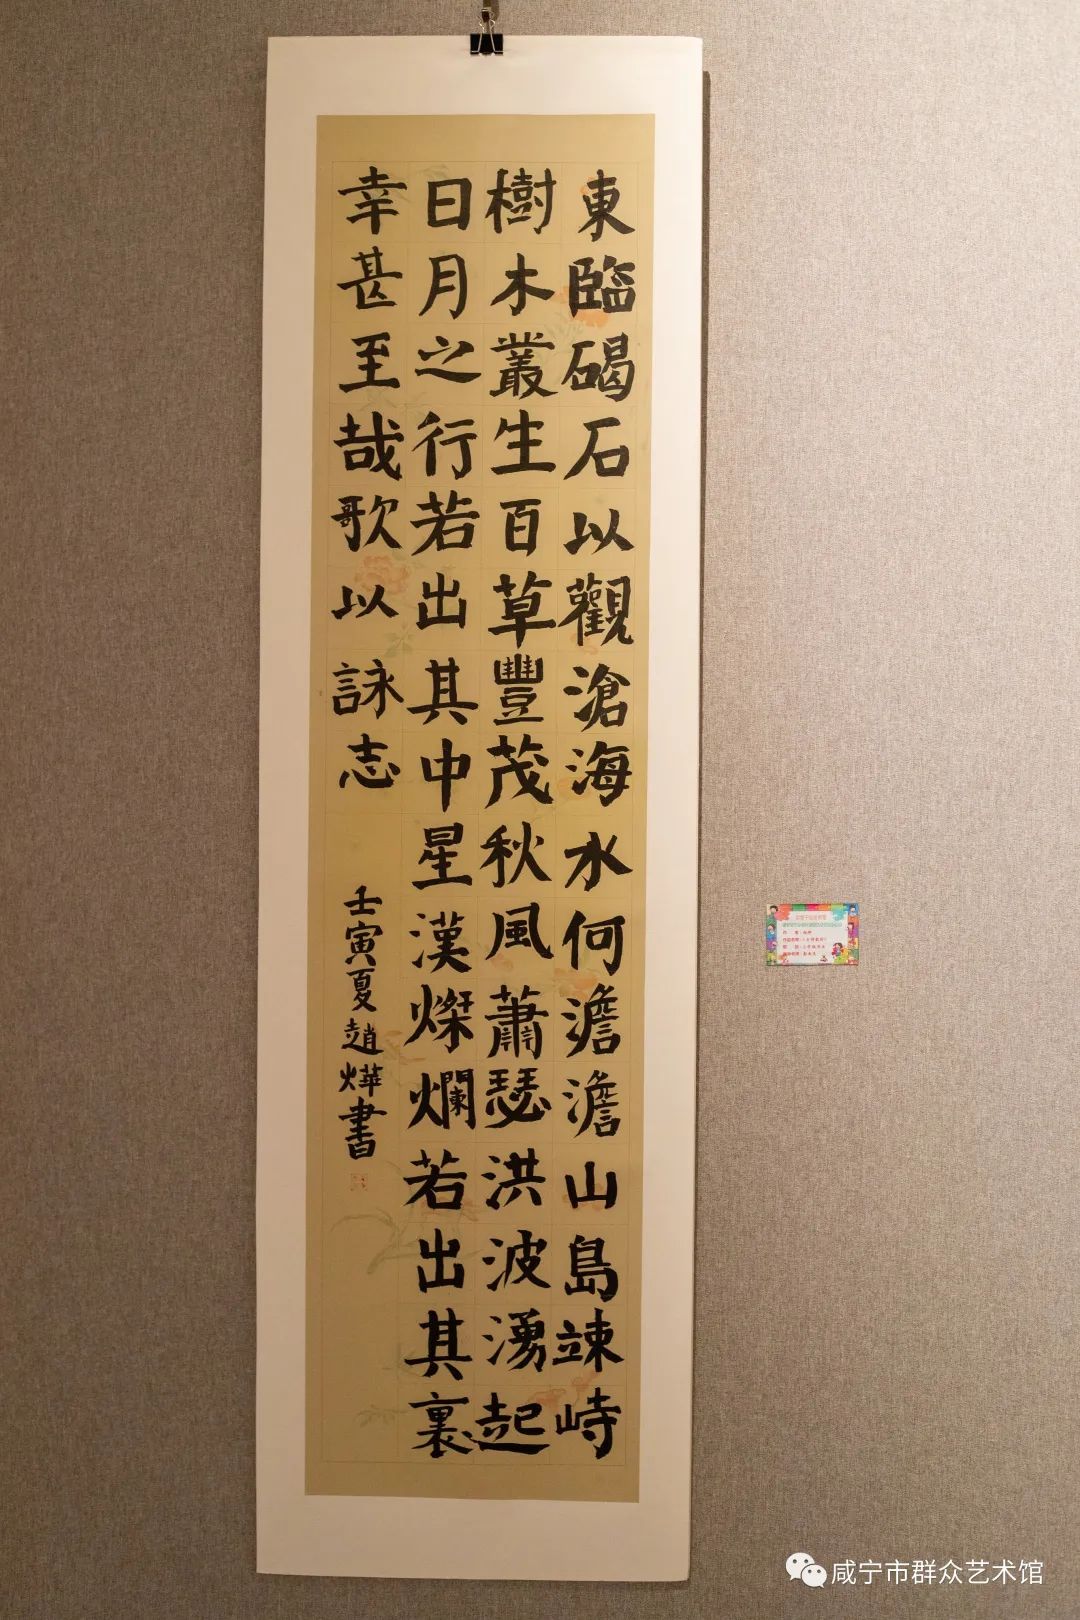 東臨碣石以觀滄海水何澹澹山島竦峙
樹木叢生百草豐茂秋風蕭瑟洪波湧起
日月之行若出其中星漢燦爛若出其裏
幸甚至哉歌以詠志
壬寅夏趙燁書
咸宁市群众艺术馆